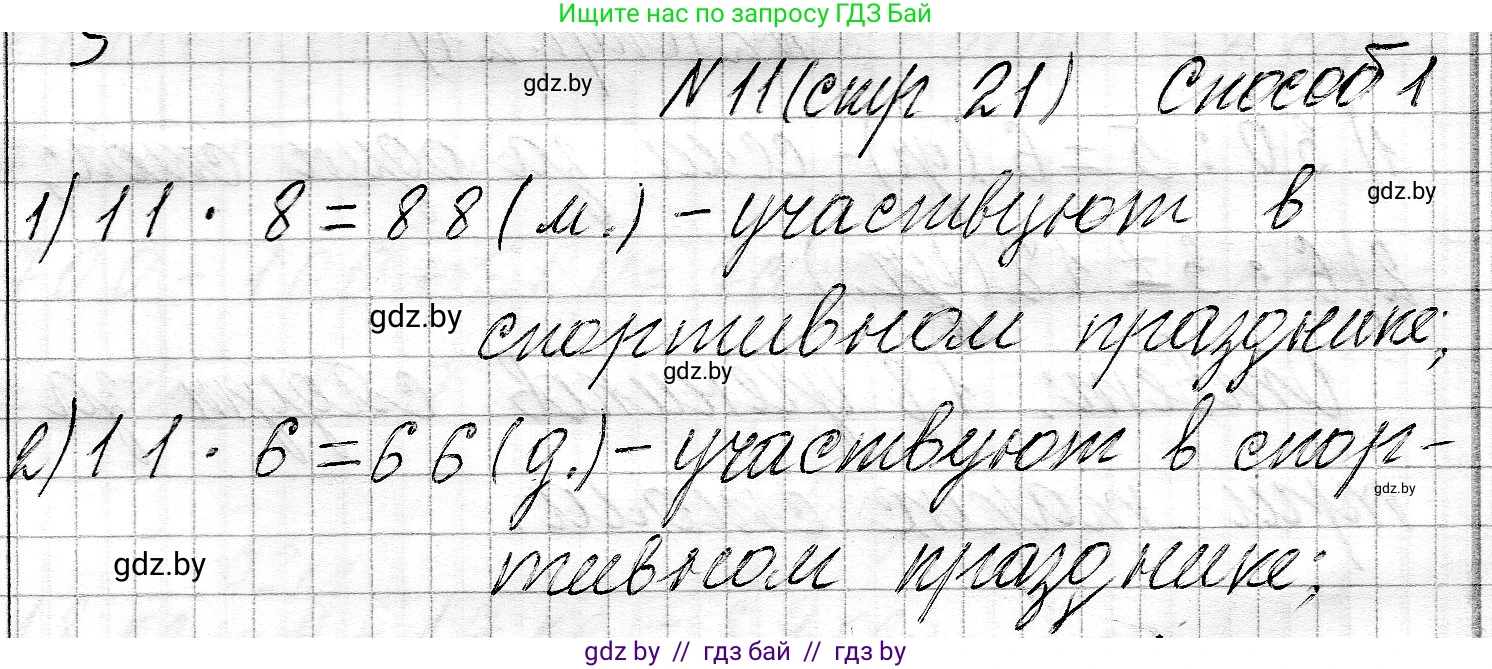 Ищите нас по запросу ГДЗ Бай
gdz.by
N 11 (стр 21) Способ 1
1) 11 · 8 = 88 (м.) – участвуют в
gdz.by
gdz.by
спортивном празднике;
gdz.by
2) 11 · 6 = 66 (д.) – участвуют в спор-
gdz.by
gdz.by
тивном празднике;
gdz.by // гдз бай // гдз by